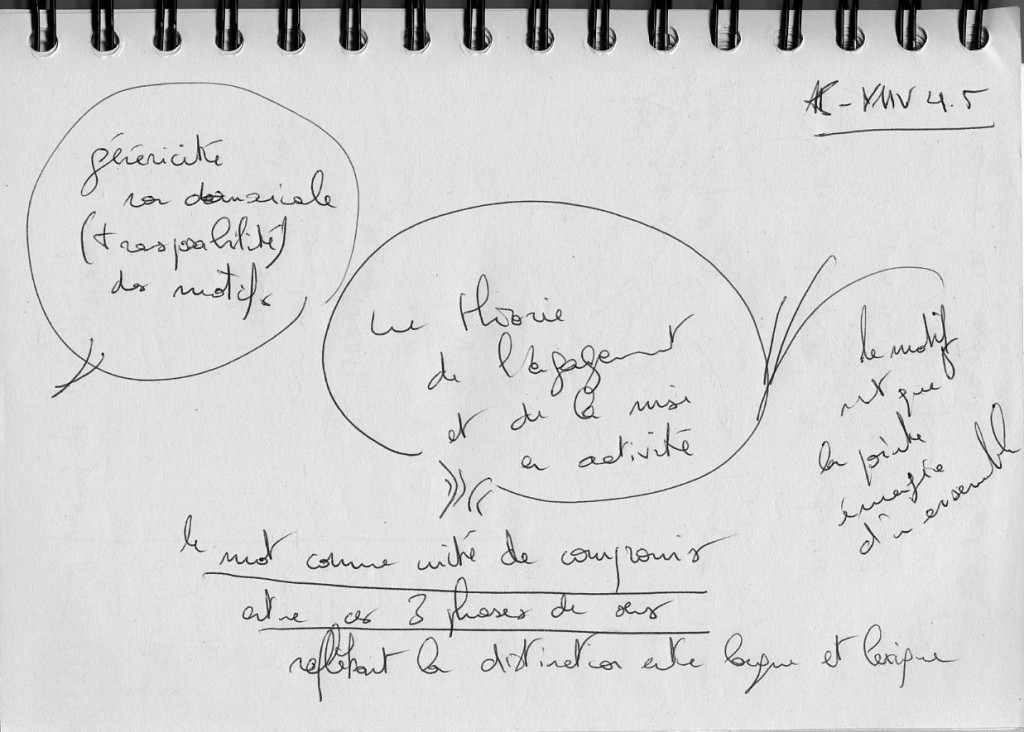 4.5
généricité
non domaniale
(transposabilité)
des motifs
une théorie
de l'engagement
et de la mise
en activité
le motif
n'est que
la pointe
émergée
d'un ensemble
le mot comme unité de compromis
entre ces 3 phases de sens
reflétant la distinction entre langue et lexique